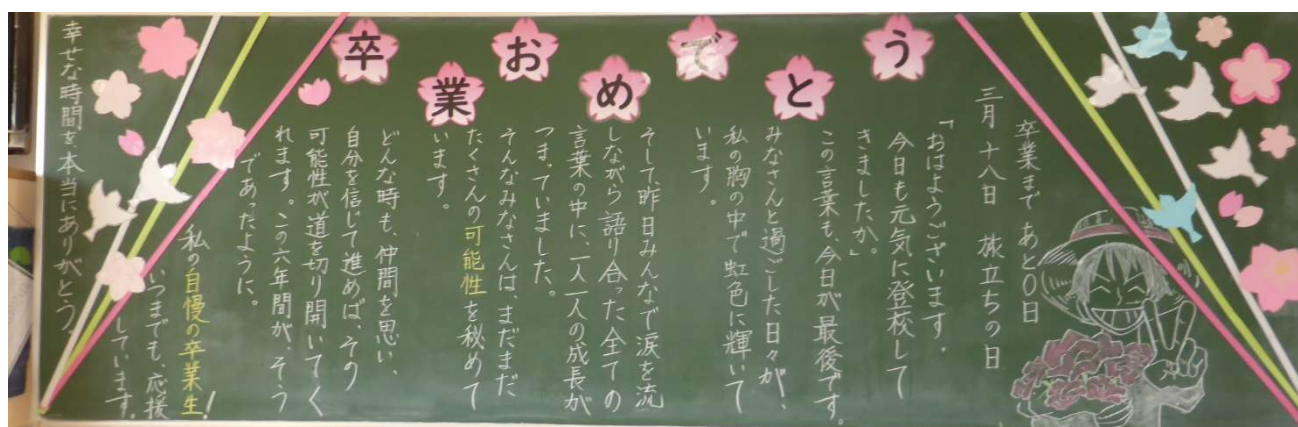 卒業おめでとう
卒業まであと0日
三月十八日　旅立ちの日
「おはようございます。
今日も元気に登校して
きましたか。」
この言葉も、今日が最後です。
みなさんと過ごした日々が、
私の胸の中で虹色に輝いて
います。
そして昨日みんなで涙を流
しながら語り合った全ての
言葉の中に、一人一人の成長が
つまっていました。
そんなみなさんは、まだまだ
たくさんの可能性を秘めて
います。
どんな時も、仲間を思い、
自分を信じて進めば、その
可能性が道を切り開いてく
れます。この六年間が、そう
であったように。
私の自慢の卒業生!
いつまでも、応援
しています。
幸せな時間を、本当にありがとう。